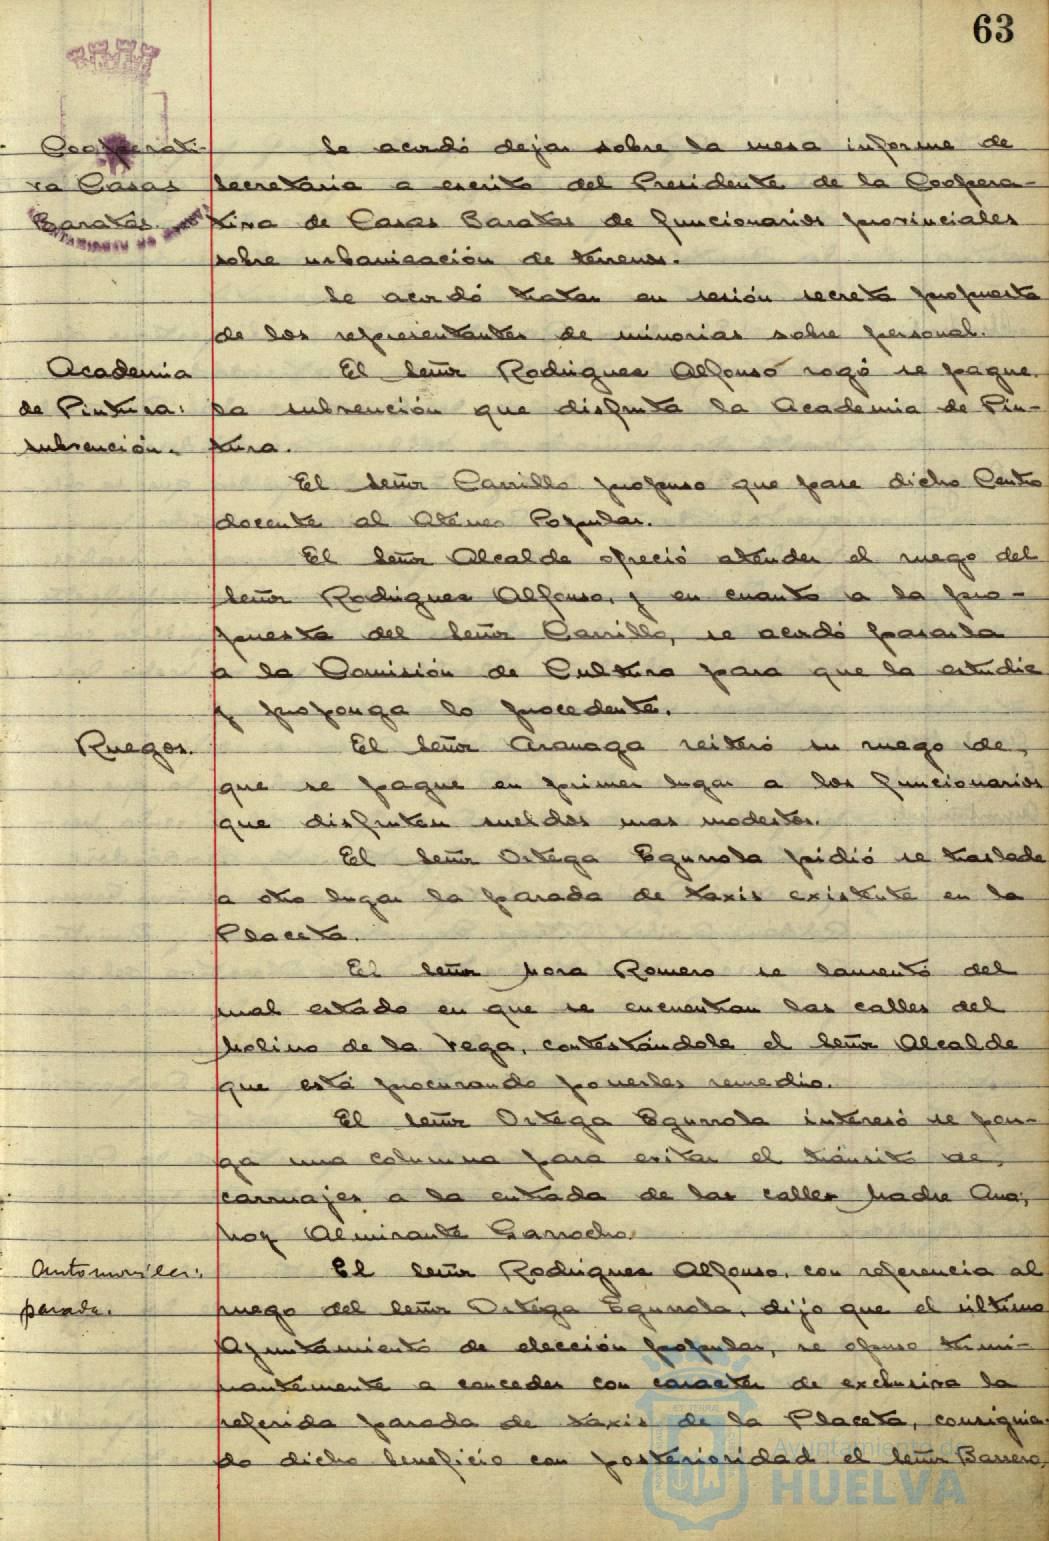 63
Cooperati-
va Casas
Baratas.
Se acordó dejar sobre la mesa informe de
Secretaria a escrito del Presidente de la Coopera-
tiva de Casas Baratas de funcionarios provinciales
sobre urbanización de terrenos.
Se acordó tratar en sesión secreta propuesta
de los representantes de minorias sobre personal.
Academia
de Pintura:
subvención.
El Señor Rodrigues Alfonso rogó se pague
la subvención que disfruta la Academia de Pin-
tura.
El Señor Carrillo propuso que pase dicho Centro
docente al Ateneo Popular.
El Señor Alcalde ofreció atender el ruego del
Señor Rodrigues Alfonso, y en cuanto a la pro-
puesta del Señor Carrillo, se acordó pasarla
a la Comisión de Cultura para que la estudie
y proponga lo procedente.
Ruegos.
El Señor Aranaga reiteró su ruego de
que se pague en primer lugar a los funcionarios
que disfruten sueldos mas modestos.
El Señor Ortega Egurrola pidió se traslade
a otro lugar la parada de taxis existente en la
Placeta.
El Señor Mora Romero se lamentó del
mal estado en que se encuentran las calles del
Molino de la Vega, contestándole el Señor Alcalde
que está procurando ponerles remedio.
El Señor Ortega Egurrola interesó se pon-
ga una columna para evitar el tránsito de
carruajes a la entrada de las calles Madre Ana,
hoy Almirante Garrocho.
Automóviles:
parada.
El Señor Rodrigues Alfonso, con referencia al
ruego del Señor Ortega Egurrola, dijo que el último
Ayuntamiento de elección popular, se opuso termi-
nantemente a conceder con caracter de exclusiva la
referida parada de taxis de la Placeta, consiguien-
do dicho beneficio con posterioridad el Señor Barrero,
Ayuntamiento de
HUELVA